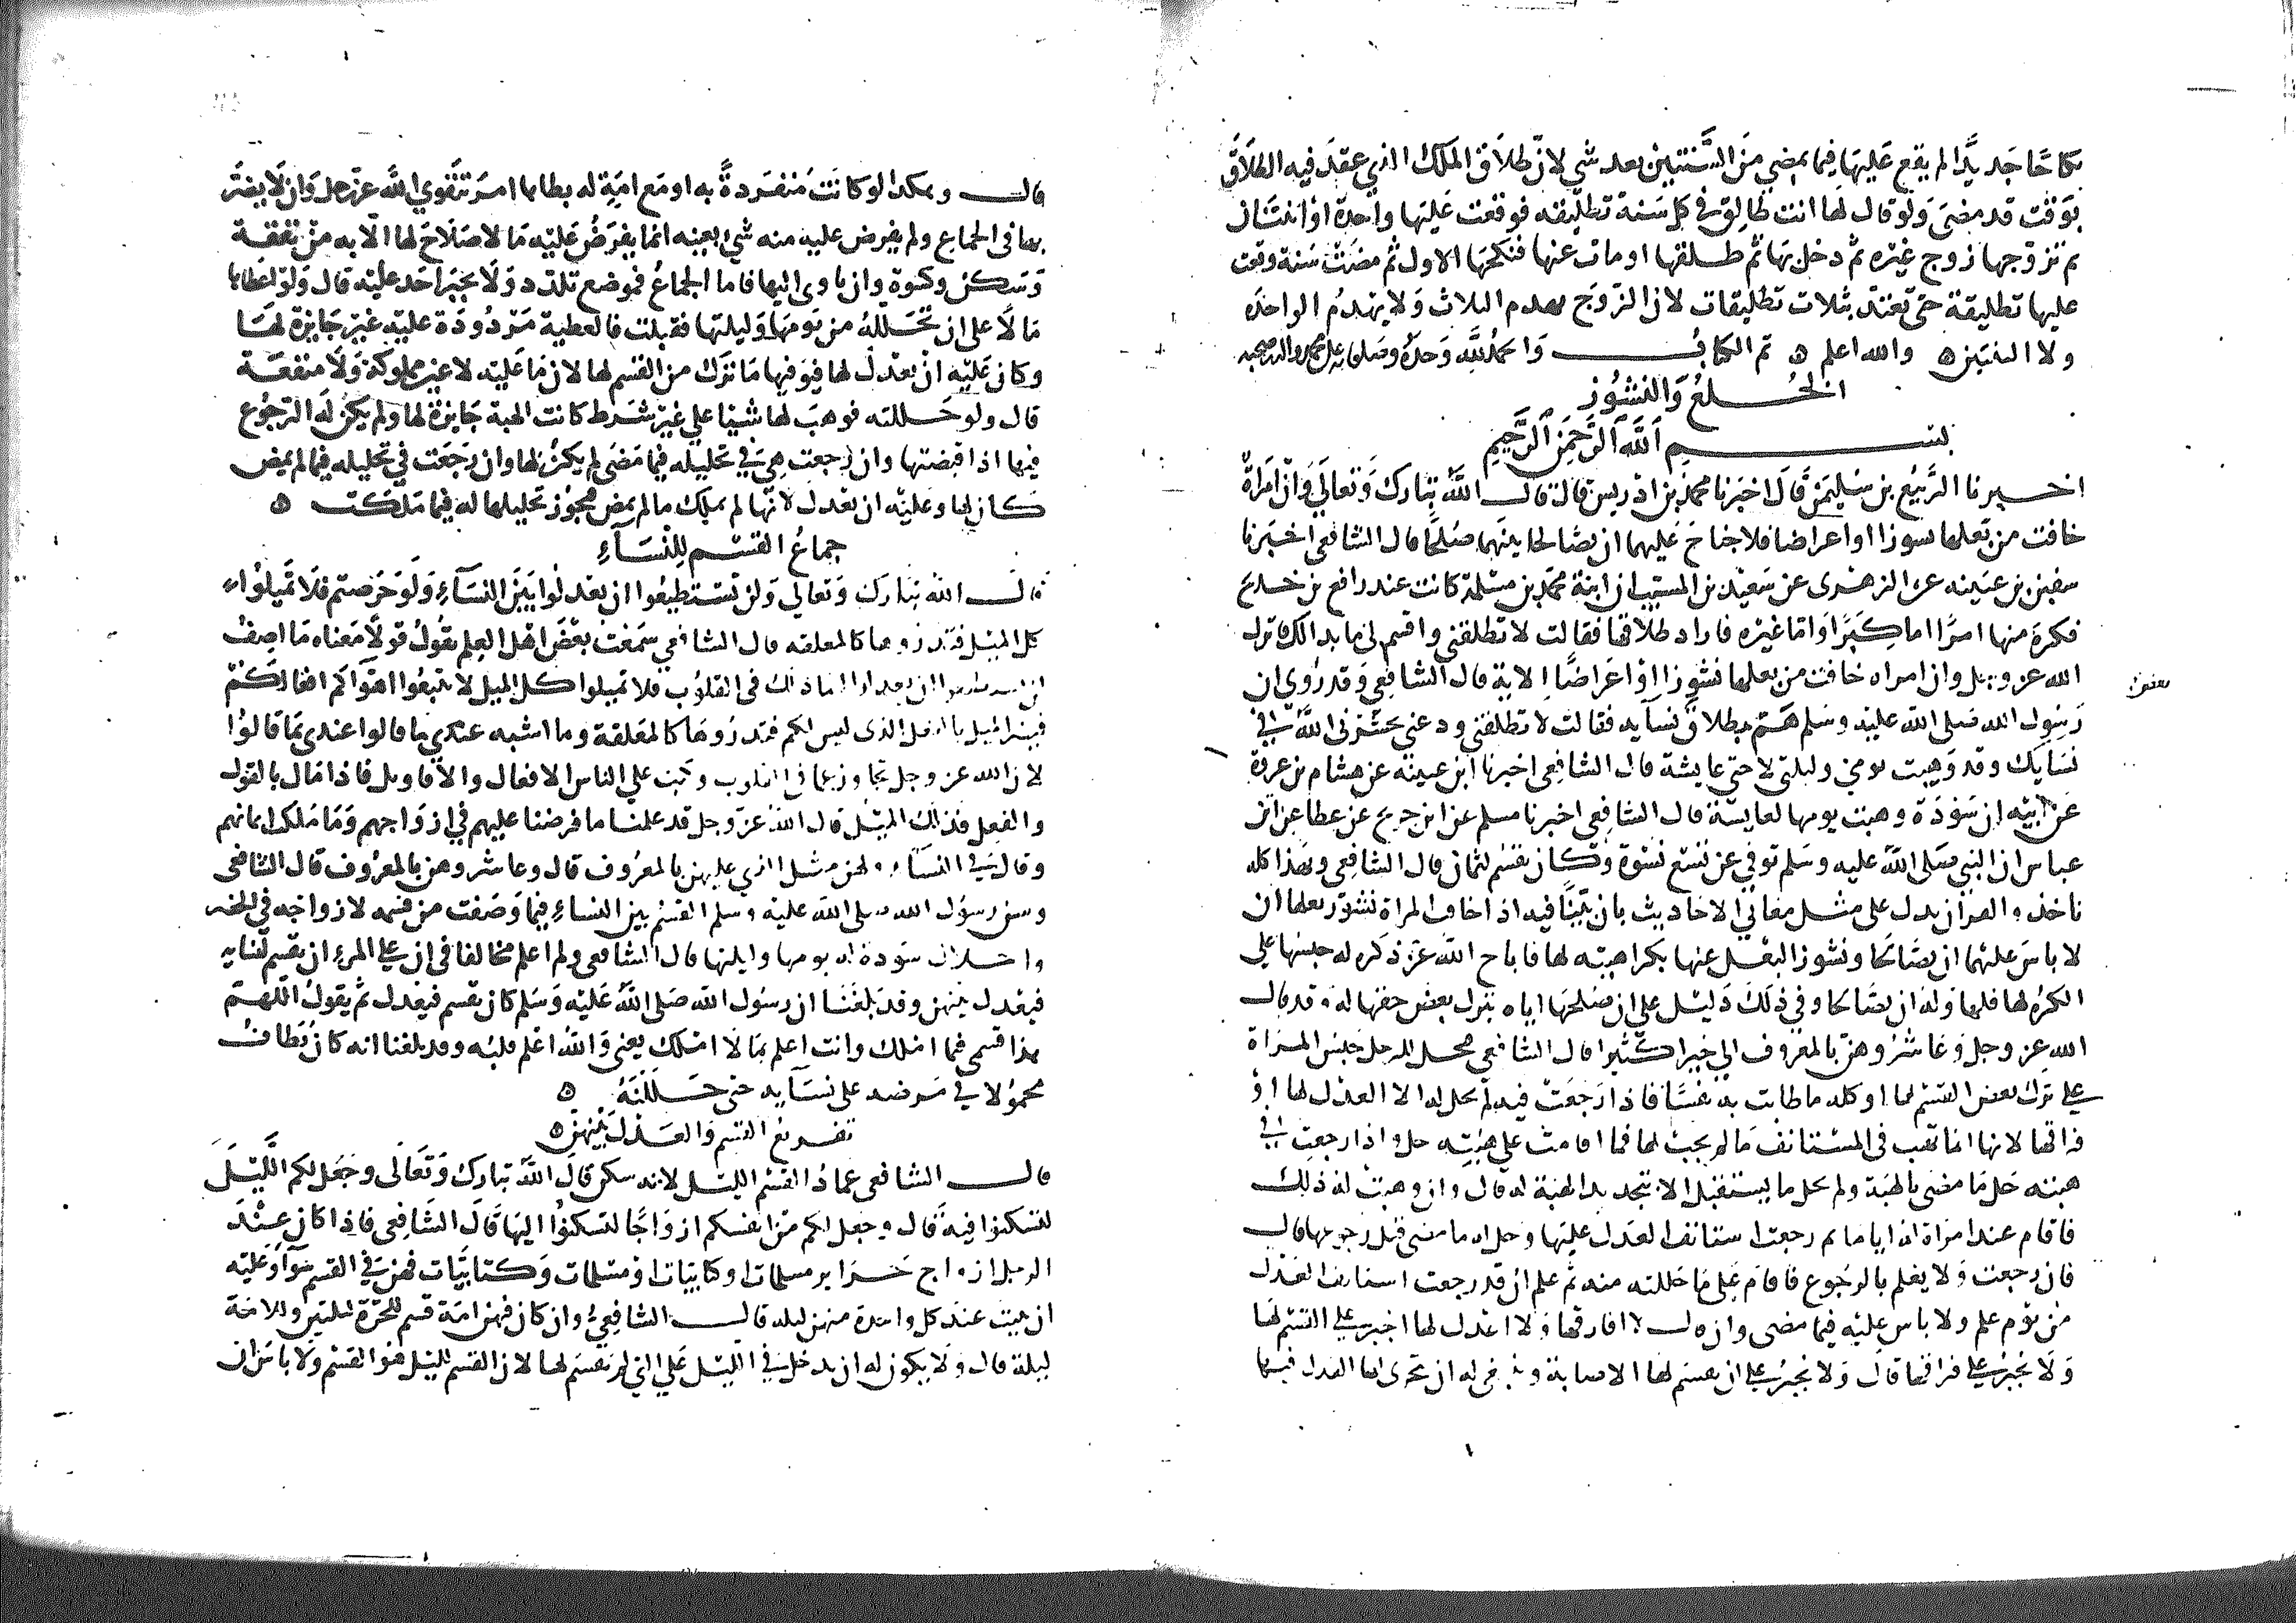 نكاحا جديدا لم يقع عليها فيما يمضي من السنتين بعد شي لان طلاق الملك الذي عقد فيه الطلاق
بوقت قد مضى ولو قال لها انت طالق في كل سنة تطليقه فوقعت عليها واحدة او اثنتان
ثم تزوجها زوج غيره ثم دخل بها ثم طلقها او مات عنها فنكحها الاول ثم مضت سنة وقعت
عليها تطليقة حتى تعتد بثلاث تطليقات لان الزوج يهدم الثلاث ولا يهدم الواحده
ولا الثنتين والله اعلم تم الكتاب والحمد لله وحده وصلى على محمد واله وصحبه
الخلع والنشوز
بسم الله الرحمن الرحيم
اخبرنا الربيع بن سليمن قال اخبرنا محمد بن ادريس قال قال الله تبارك وتعالى وان امراة
خافت من بعلها نشوزا او اعراضا فلا جناح عليهما ان يصالحا بينهما صلحا قال الشافعي اخبرنا
سفين بن عيينه عن الزهري عن سعيد بن المسيب ان ابنة محمد بن مسلمة كانت عند رافع بن خديج
فكره منها امرا اما كبرا واما غيره فاراد طلاقها فقالت لا تطلقني واقسم لي ما بدا لك فانزل
الله عز وجل وان امراه خافت من بعلها نشوزا او اعراضا الاية قال الشافعي وقد روي ان
رسول الله صلى الله عليه وسلم هم بطلاق نسايه فقالت لا تطلقني ودعني يحشرني الله في
بعض
نسايك وقد وهبت يومي وليلتي لاختي عايشة قال الشافعي اخبرنا ابن عيينه عن هشام بن عروة
عن ابيه ان سودة وهبت يومها لعايشة قال الشافعي اخبرنا مسلم عن ابن جريج عن عطا عن ابن
عباس ان النبي صلى الله عليه وسلم توفي عن تسع نسوة وكان يقسم لثمان قال الشافعي وبهذا كله
ناخذ والقران يدل على مثل معاني الاحاديث بان بينا فيه اذا خافت المراة نشوز بعلها ان
لا باس عليهما ان يصالحا ونشوز البعل عنها بكراهيته لها فاباح الله عز ذكره له حبسها على
الكره لها فلها وله ان يصالحا وفي ذلك دليل على ان صلحها اياه بترك بعض حقها له وقد قال
الله عز وجل وعاشروهن بالمعروف الى خيرا كثيرا قال الشافعي فيحل للرجل حبس المراة
على ترك بعض القسم لها او كله ما طابت به نفسا فاذا رجعت فيه لم يحل له الا العدل لها او
فراقها لانها انما تهب في المستانف ما لم يجب لها فما اقامت على هبته حل واذا رجعت في
هبته حل ما مضى بالهبة ولم يحل ما يستقبل الا بتجديد الهبة له قال وان وهبت له ذلك
فاقام عند امراة له اياما ثم رجعت استانف العدل عليها وحل له ما مضى قبل رجوعها قال
فان رجعت ولا يعلم بالرجوع فاقام على ما حللته منه ثم علم ان قد رجعت استانف العدل
من يوم علم ولا باس عليه فيما مضى وان قال لا افارقها ولا اعدل لها اجبر على القسم لها
ولا يجبر على فراقها قال ولا يجبر على ان يقسم لها الاصابة وينبغي له ان يتحرى لها العدل فيها
قال وهكذا لو كانت منفردة به او مع امة له يطاها امر بتقوى الله عز وجل وان لا يضر
بها في الجماع ولم يفرض عليه منه شي بعينه انما يفرض عليه ما لا صلاح لها الا به من نفقة
وسكن وكسوة وان ياوى اليها فاما الجماع فموضع تلذذ ولا يجبر احد عليه قال ولو اعطاها
مالا على ان تحلله من يومها وليلتها فقبلت فالعطية مردودة عليه غير جايزة لها
وكان عليه ان يعدل لها فيوفيها ما ترك من القسم لها لان ما عليه لا عين مملوكة ولا منفعة
قال ولو حللته فوهب لها شيئا على غير شرط كانت الهبة جايزة لها ولم يكن له الرجوع
فيها اذا قبضتها وان رجعت هي في تحليله فيما مضى لم يكن لها وان رجعت في تحليله فيما لم يمض
كان لها وعليه ان يعدل لانها لم تملك ما لم يمض فيجوز تحليلها له فيما ملكت
جماع القسم للنساء
قال الله تبارك وتعالى ولن تستطيعوا ان تعدلوا بين النساء ولو حرصتم فلا تميلوا
كل الميل فتذروها كالمعلقه قال الشافعي سمعت بعض اهل العلم يقول قولا معناه ما اصف
لن تستطيعوا ان تعدلوا انما ذلك في القلوب فلا تميلوا كل الميل لا تتبعوا اهواكم افعالكم
فيصير الميل بالفعل الذي ليس لكم فتذروها كالمعلقة وما اشبه عندي ما قالوا عندي بما قالوا
لان الله عز وجل تجاوز عما في القلوب وكتب على الناس الافعال والاقاويل فاذا مال بالقول
والفعل فذلك الميل قال الله عز وجل قد علمنا ما فرضنا عليهم في ازواجهم وما ملكت ايمانهم
وقال في النساء ولهن مثل الذي عليهن بالمعروف قال وعاشروهن بالمعروف قال الشافعي
وسن رسول الله صلى الله عليه وسلم القسم بين النساء فيما وصفت من قسمه لازواجه في الحضر
واحلال سودة له يومها وليلتها قال الشافعي ولم اعلم مخالفا في ان على المرء ان يقسم لنسايه
فيعدل بينهن وقد بلغنا ان رسول الله صلى الله عليه وسلم كان يقسم فيعدل ثم يقول اللهم
هذا قسمي فيما املك وانت اعلم بما لا املك يعني والله اعلم قلبه وقد بلغنا انه كان يطاف
محمولا في مرضه على نسايه حتى حللنه
تفريع القسم والعدل بينهن
قال الشافعي عماد القسم الليل لانه سكن قال الله تبارك وتعالى وجعل لكم الليل
لتسكنوا فيه قال وجعل لكم من انفسكم ازواجا لتسكنوا اليها قال الشافعي فاذا كان عند
الرجل ازواج حراير مسلمات او كتابيات او مسلمات وكتابيات فهن في القسم سوآ وعليه
ان يبيت عند كل واحدة منهن ليله قال الشافعي وان كان فيهن امة قسم للحرة ليلتين وللامة
ليلة قال ولا يكون له ان يدخل في الليل على التي لم يقسم لها لان القسم لليل هو القسم ولا باس ان